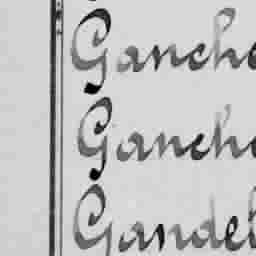 Ganche
Ganche
Gandel